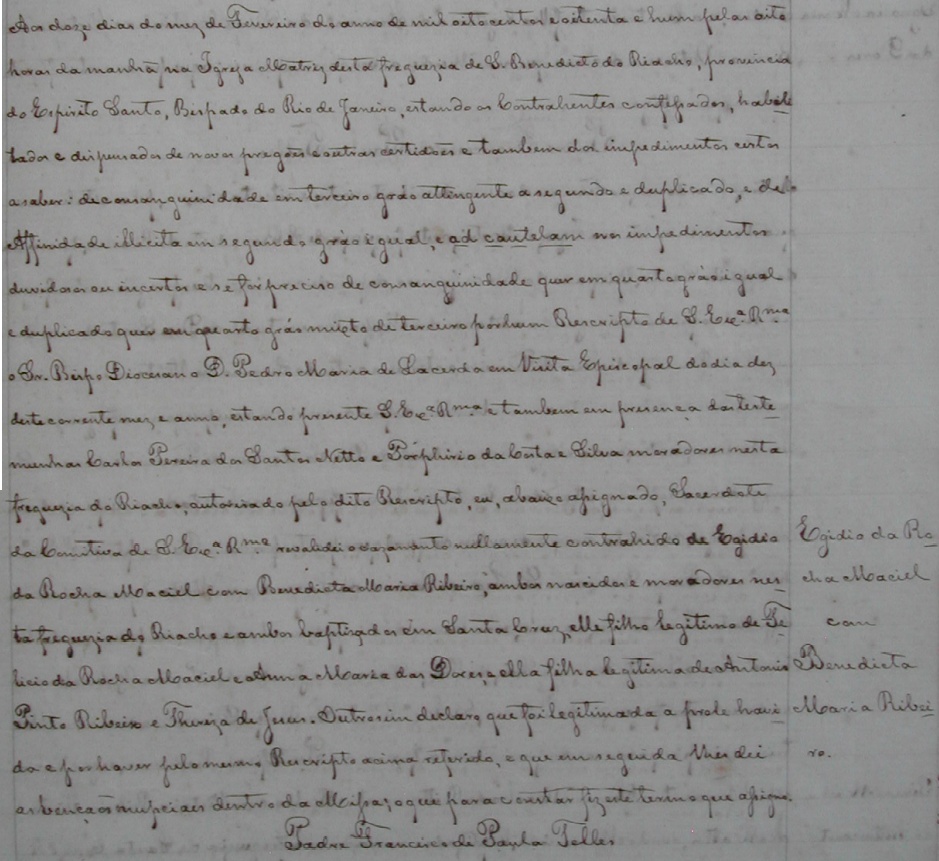 Aos doze dias do mez de Fevereiro do anno de mil oitocentos e oitenta e hum pelas oito
horas da manhã na Igreja Matriz desta freguezia de S. Benedicto do Riacho, provincia
do Espirito Santo, Bispado do Rio de Janeiro, estando os Contrahentes confessados, habili
tados e dispensados de novos pregões e outras certidões e tambem dos impedimentos certos
a saber: de consanguinidade em terceiro gráo attingente a segundo e duplicado, e de
Affinidade illicita em segundo gráo igual, e ad cautelam nos impedimentos
duvidosos ou incertos e se for preciso de consanguinidade quer em quarto gráo igual
e duplicado quer em quarto gráo mixto de terceiro por hum Rescripto de S. Exª. Rma
o Sr. Bispo Diocesano D. Pedro Maria de Lacerda em Visita Episcopal do dia dez
deste corrente mez e anno, estando presente S. Exª. Rma e tambem em presença das teste
munhas Carlos Pereira dos Santos Netto e Porphirio da Costa e Silva moradores nesta
freguezia do Riacho, autorisado pelo dito Rescripto, eu, abaixo assignado, Sacerdote
da Comitiva de S. Exª. Rma revalidei o casamento nullamente contrahido de Egidio
da Rocha Maciel com Benedicta Maria Ribeiro, ambos nascidos e moradores nes
ta freguezia do Riacho e ambos baptizados em Santa Cruz, elle filho legitimo de Fe
licio da Rocha Maciel e Anna Maria das Dores, e ella filha legitima de Antonio
Pinto Ribeiro e Thereza de Jesus. Outrosim declaro que foi legitimada a prole havi
da e por haver pelo mesmo Rescripto acima referido, e que em seguida lhes dei
as bençaõs nupciaes dentro da Missa; o que para constar fiz este termo que assigno.
Padre Francisco de Paula Telles
Egidio da Ro
cha Maciel
com
Benedicta
Maria Ribei
ro.